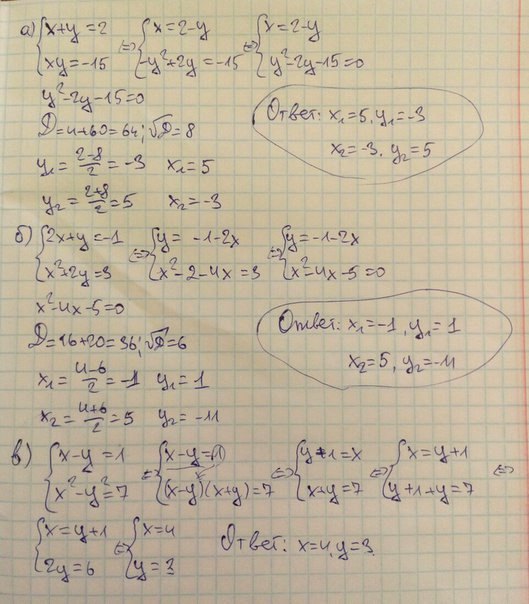 а) {x+y=2 ⇔ {x=2-y ⇔ {x=2-y
{xy=-15 {-y²+2y=-15 {y²-2y-15=0
y²-2y-15=0
D=4+60=64; √D=8
y₁=(2-8)/2=-3 x₁=5
y₂=(2+8)/2=5 x₂=-3
Ответ: x₁=5, y₁=-3
x₂=-3, y₂=5
б) {2x+y=-1 ⇔ {y=-1-2x ⇔ {y=-1-2x
{x²+2y=3 {x²-2-4x=3 {x²-4x-5=0
x²-4x-5=0
D=16+20=36; √D=6
x₁=(4-6)/2=-1 y₁=1
x₂=(4+6)/2=5 y₂=-11
Ответ: x₁=-1, y₁=1
x₂=5, y₂=-11
в) {x-y=1 ⇔ {x-y=1 ⇔ {y+1=x ⇔ {x=y+1 ⇔
{x²-y²=7 {(x-y)(x+y)=7 {x+y=7 {y+1+y=7
{x=y+1 ⇔ {x=4
{2y=6 {y=3
Ответ: x=4, y=3